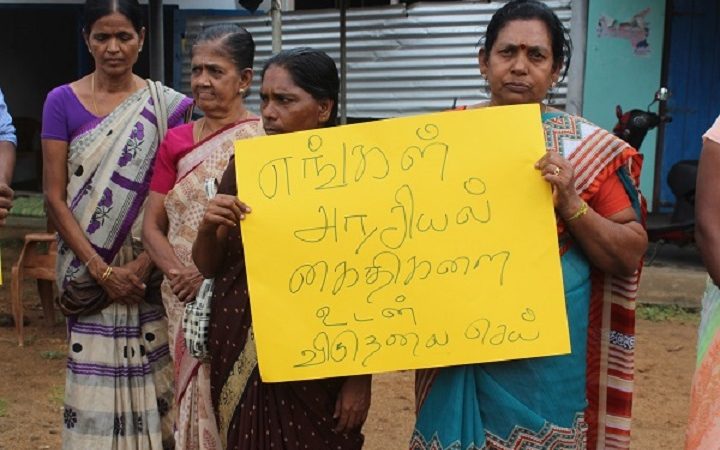 எங்கள்
அரசியல்
கைதிகளை
உடன்
விடுதலை செய்